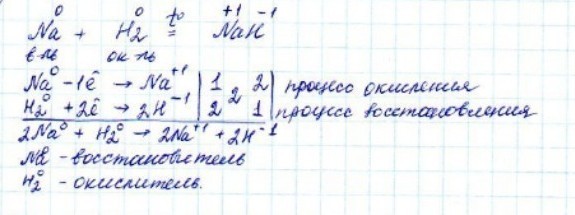 Na⁰ + H₂⁰ t°= Na⁺¹H⁻¹
в-ль ок-ль
Na⁰ - 1ē → Na⁺¹ | 1 | 2 | 2 | процесс окисления
H₂⁰ + 2ē → 2H⁻¹ | 2 | 1 | процесс восстановления
2Na⁰ + H₂⁰ → 2Na⁺¹ + 2H⁻¹
Na⁰ - восстановитель
H₂⁰ - окислитель.